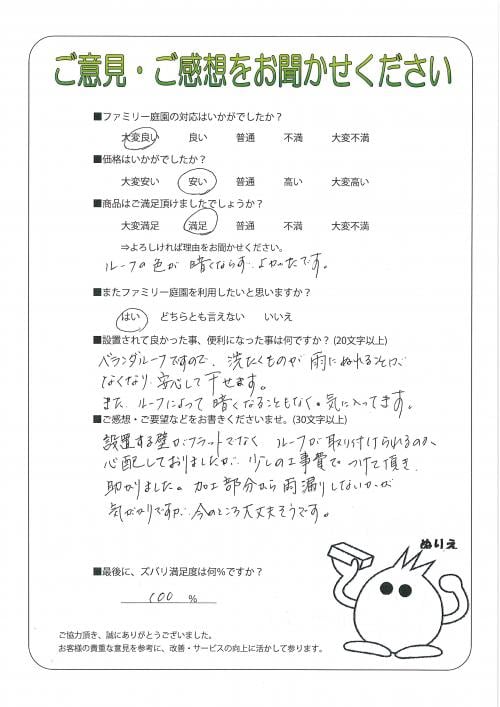 ご意見・ご感想をお聞かせください
■ファミリー庭園の対応はいかがでしたか？
大変良い 良い 普通 不満 大変不満
■価格はいかがでしたか？
大変安い 安い 普通 高い 大変高い
■商品はご満足頂けましたでしょうか？
大変満足 満足 普通 不満 大変不満
⇒よろしければ理由をお聞かせください。
ルーフの色が 暗くならず よかったです。
■またファミリー庭園を利用したいと思いますか？
はい どちらとも言えない いいえ
■設置されて良かった事、便利になった事は何ですか？(20文字以上)
ベランダルーフですので、洗たくものが 雨にぬれる
なくなり 安心して干せます。
また、ルーフによって 暗くなることもなく。気に入ってます。
■ご感想・ご要望などをお書きくださいませ。(30文字以上)
設置する壁がフラットでなく、ルーフが取り付けられるのか、
心配しておりましたが、少しの工事費で つけて頂き、
助かりました。加工部分から雨漏りしないかが
気がかりですが、今のところ大丈夫そうです。
ぬりえ
■最後に、ズバリ満足度は何％ですか？
100 %
ご協力頂き、誠にありがとうございました。
お客様の貴重な意見を参考に、改善・サービスの向上に活かして参ります。